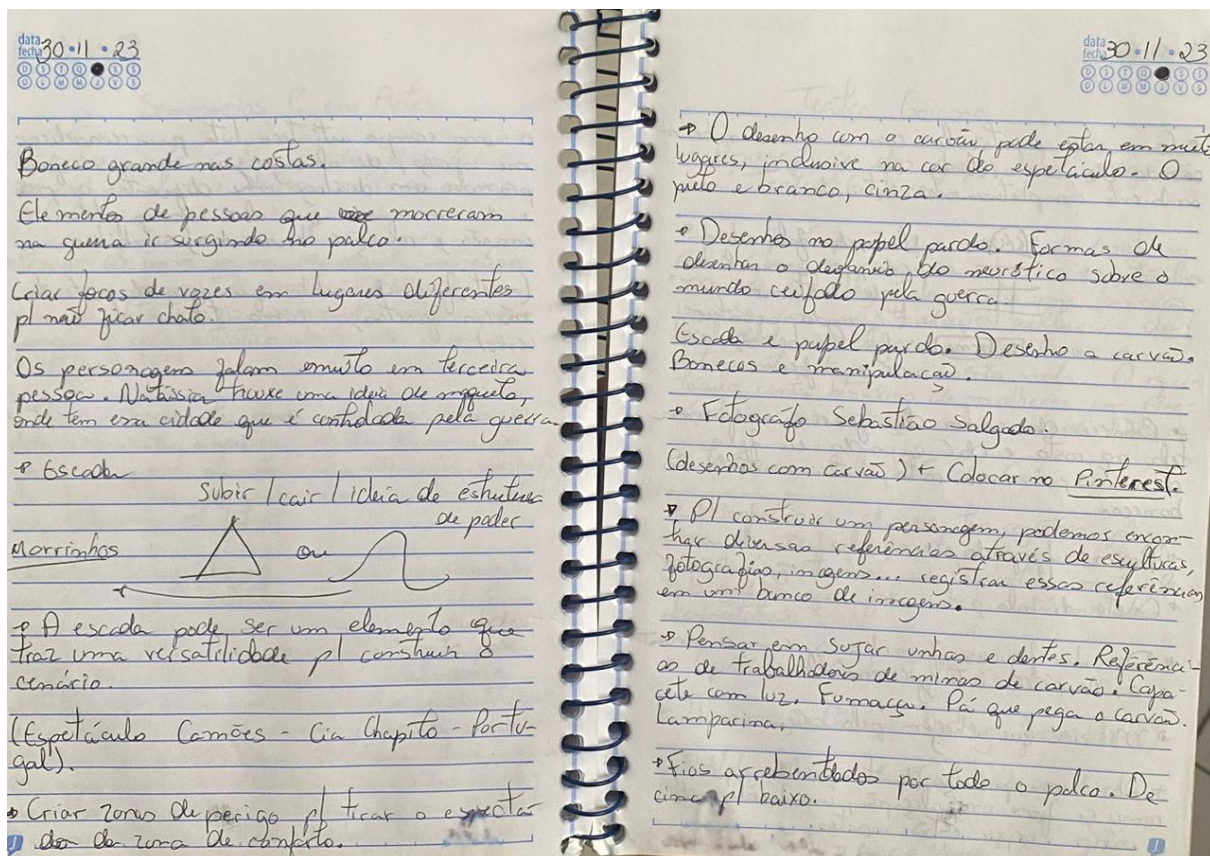 data
fecha 30 • 11 • 23
D S T Q Q S S
D L M M J V S
Boneco grande nas costas.
Elementos de pessoas que morreram
na guerra ir surgindo no palco.
Criar focos de vozes em lugares diferentes
p/ não ficar chato.
Os personagem falam muito em terceira
pessoa. Natássia trouxe uma ideia de maquete,
onde tem uma cidade que é controlada pela guerra
→ Escada
Subir / cair / ideia de estrutura
de poder
Morrinhos ou
→ A escada pode ser um elemento que
traz uma versatilidade p/ construir o
cenário.
(Espetáculo Camões - Cia Chapitô - Portu-
gal).
→ Criar zonas de perigo p/ tirar o especta-
dor da zona de conforto.
data
fecha 30 • 11 • 23
D S T Q Q S S
D L M M J V S
→ O desenho com o carvão, pode estar em muitos
lugares, inclusive na cor do espetáculo. O
preto e branco, cinza.
→ Desenhos no papel pardo. Formas de
desenhar o do neurótico sobre o
mundo ceifado pela guerra.
Escada e papel pardo. Desenho a carvão.
Bonecos e manipulação.
→ Fotógrafo Sebastião Salgado.
(desenhos com carvão) + Colocar no Pinterest.
→ P/ construir um personagem, podemos encon-
trar diversas referências através de esculturas,
fotografias, imagens... registrar essas referências
em um banco de imagens.
→ Pensar em sujar unhas e dentes. Referênci-
as de trabalhadores de minas de carvão. Capa-
cete com luz. Fumaça. Pá que pega o carvão.
Lamparina.
→ Fios arrebentados por todo o palco. De
cima p/ baixo.